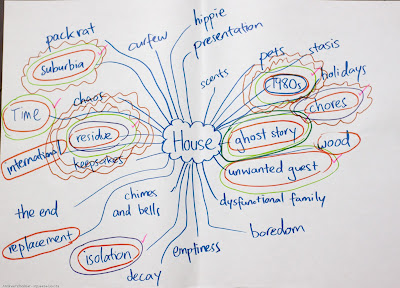 hippie
packrat
curfew
presentation
suburbia
pets
stasis
scents
1980s
holidays
chaos
chores
Time
residue
House
ghost story
wood
international
keepsakes
unwanted guest
chimes
and bells
dysfunctional family
the end
replacement
boredom
isolation
emptiness
decay